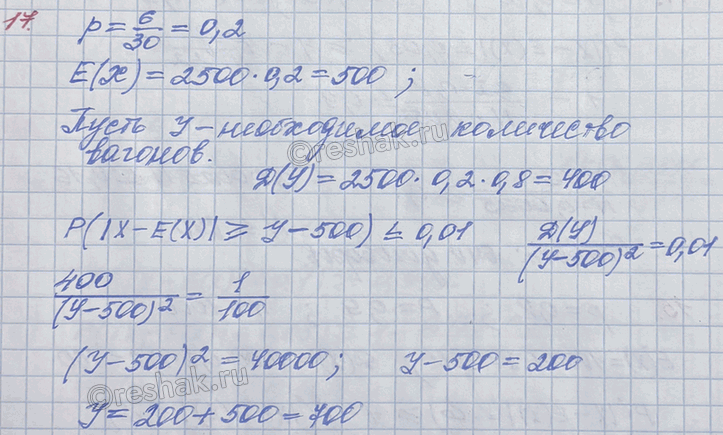 17. p = 6/30 = 0,2
E(X) = 2500 · 0,2 = 500 ;
Пусть У – необходимое количество
вагонов.
Д(У) = 2500 · 0,2 · 0,8 = 400
P(|X – E(X)| ⩾ У – 500) ≤ 0,01    Д(У)/(У–500)² = 0,01
400/(У–500)² = 1/100
(У–500)² = 40000;    У–500 = 200
У = 200 + 500 = 700
©reshak.ru
©reshak.ru